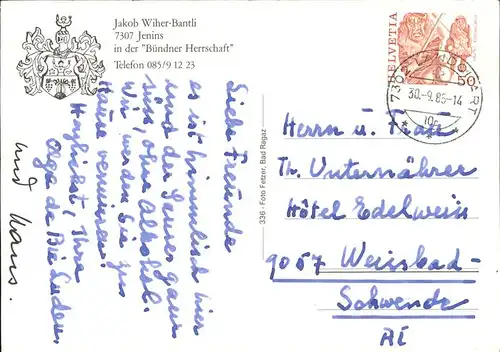 Jakob Wiher-Bantli
7307 Jenins
in der "Bündner Herrschaft"
Telefon 085/9 12 23
Liebe Freunde
es ist himmlisch hier
und der Sauser ganz
süss, ohne Alkohol.
Wir werden Sie zu
Hause vermissen!
Herzlichst, Ihre
Olga de
und Hans.
336 - Foto Fetzer, Bad Ragaz
HELVETIA
50
30.-9.86-14
Herrn u. Frau
Th. Unternährer
Hôtel Edelweiss
9057 Weissbad-
Schwende
AI